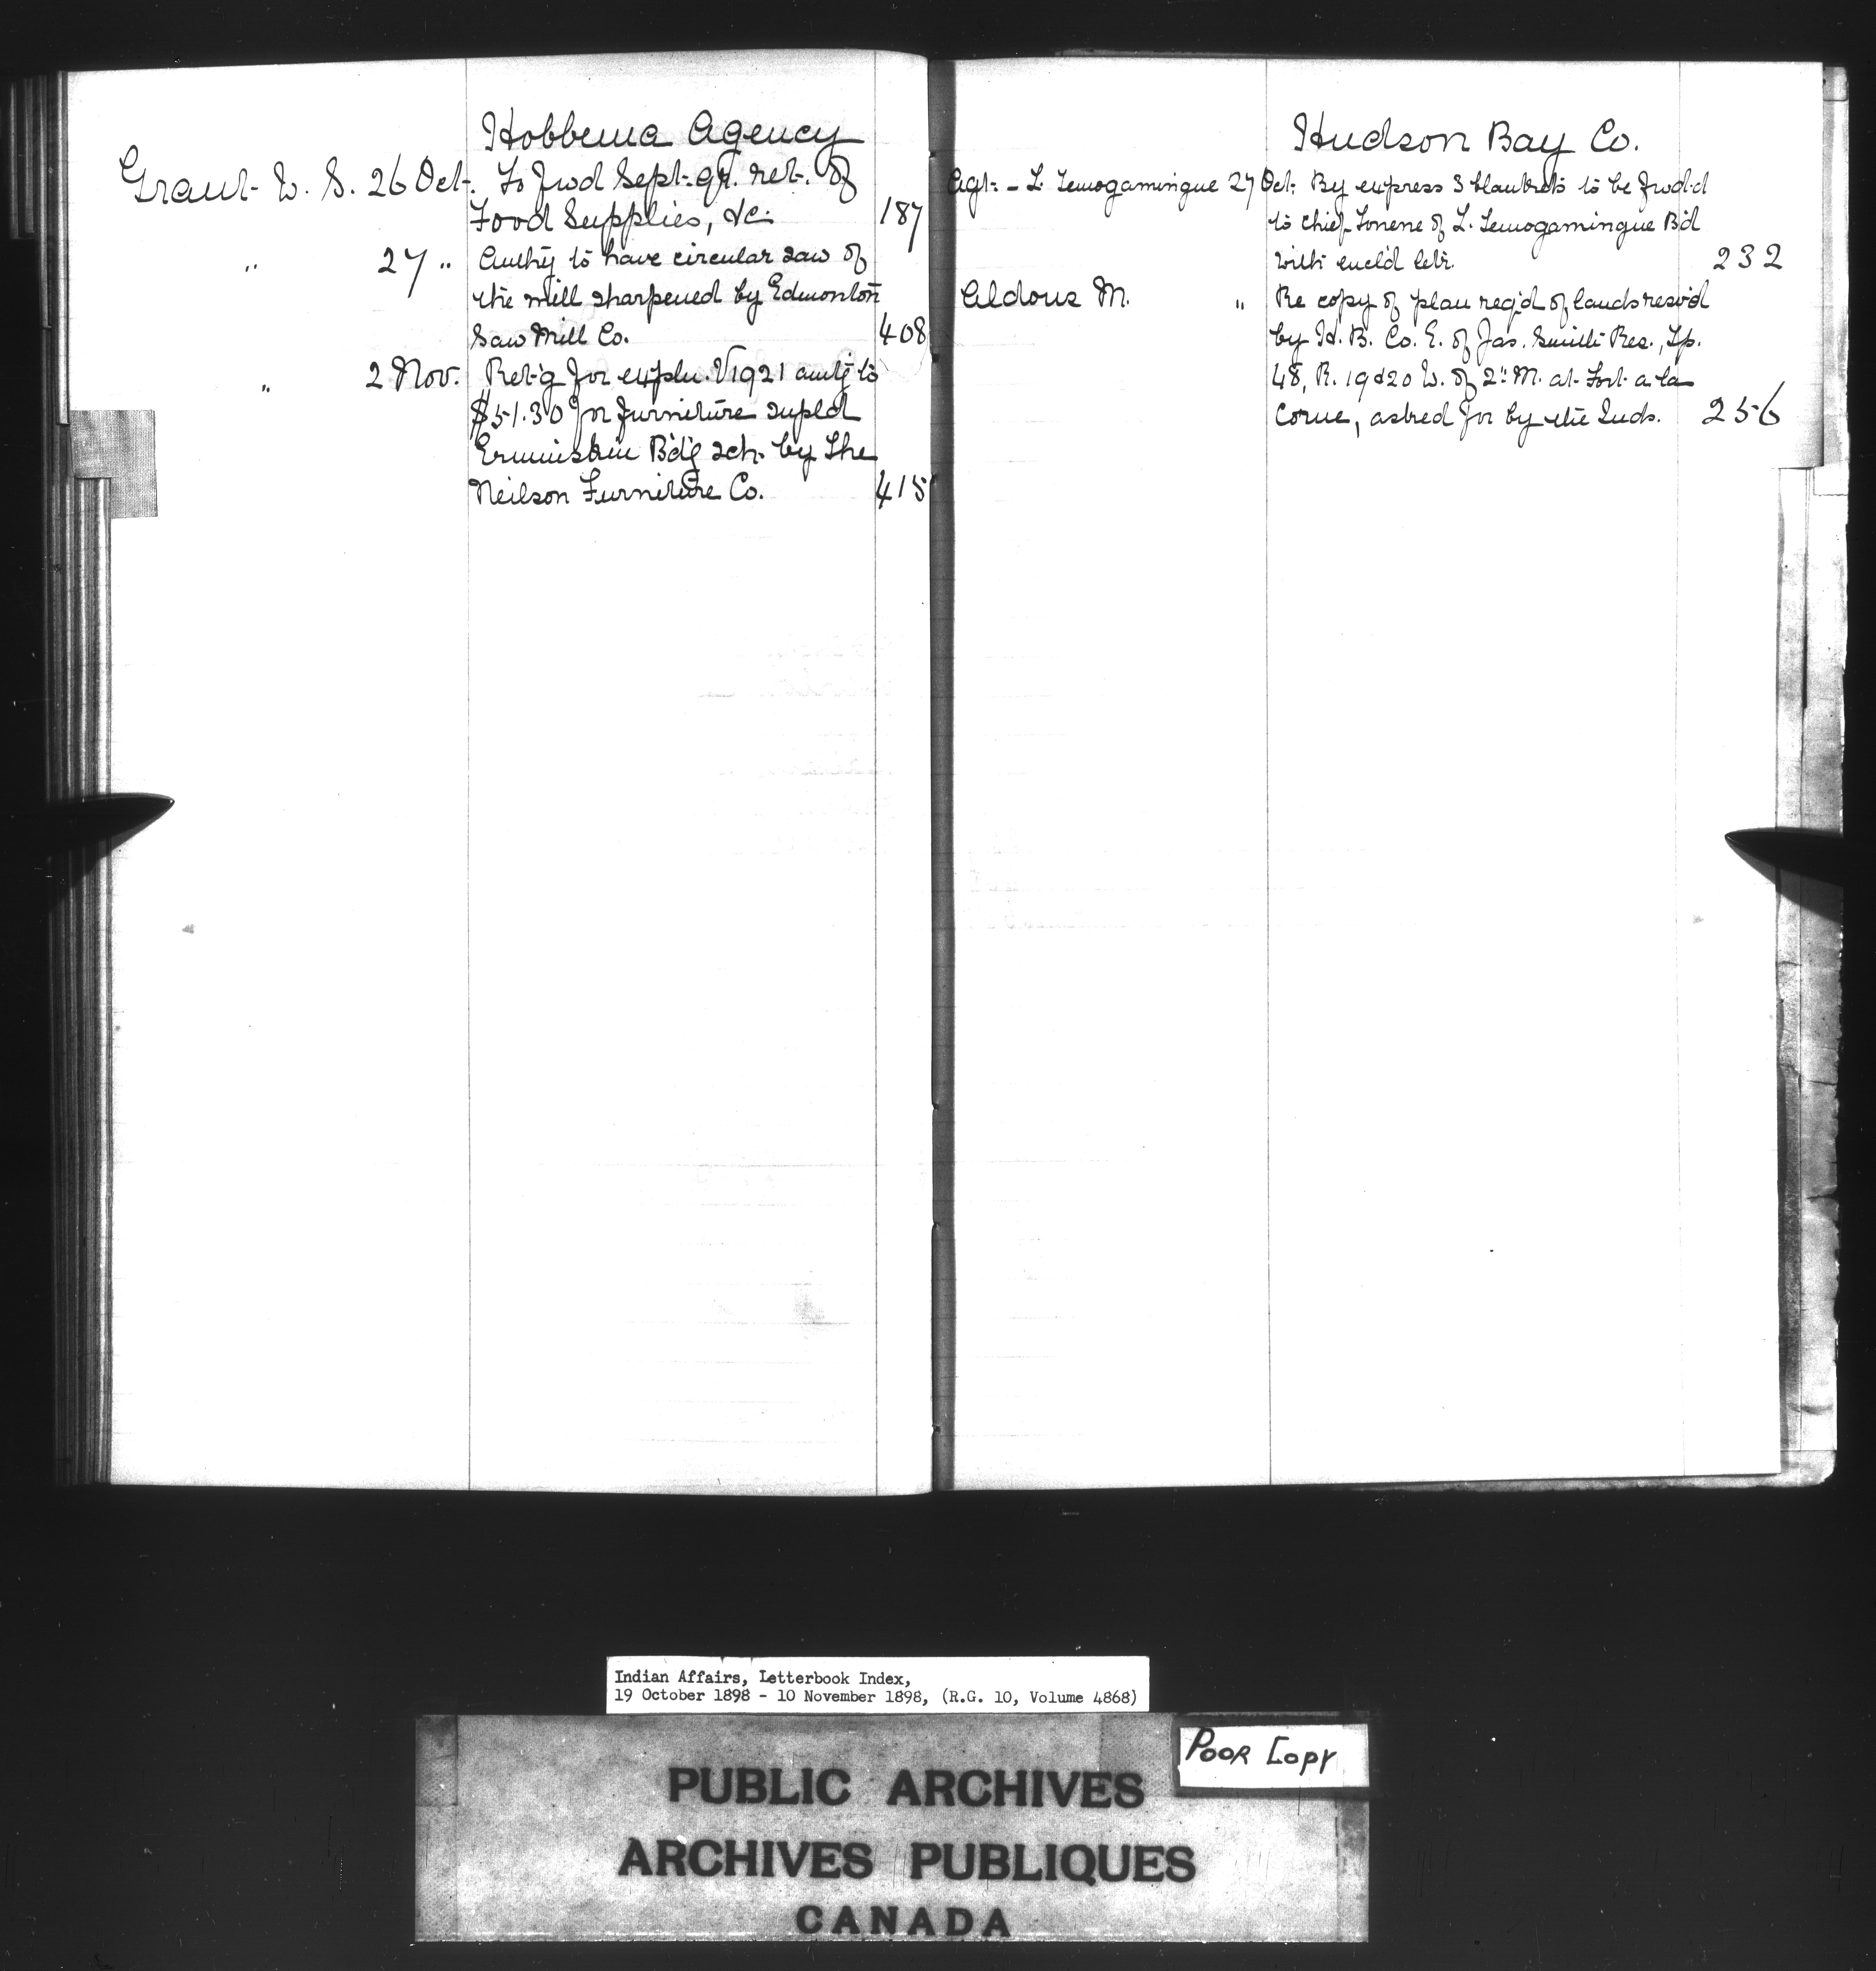 Hobbema Agency
Grant W. S. 26 Oct. To fwd Sept. qr. ret. of
Food Supplies, &c. 187
" 27 " Authy to have circular saw of
the mill sharpened by Edmonton
Saw Mill Co. 408
" 2 Nov. Ret'g for expln. V1921 auth'g to
$51.30 for furniture supld
Ermineskin Bd'g sch. by The
Neilson Furniture Co. 415
Hudson Bay Co.
Agt. - L. Temogamingue 27 Oct. By express 3 blankets to be fwd'd
to Chief Tonene of L. Temogamingue B'd
with encl'd letr. 232
Aldous M. " Re copy of plan req'd of lands resv'd
by H. B. Co. E. of Jas. Smith Res., Tp.
48, R. 19 & 20 W. of 2" M. at Fort a la
Corne, asked for by the Inds. 256
Indian Affairs, Letterbook Index,
19 October 1898 - 10 November 1898, (R.G. 10, Volume 4868)
POOR COPY
PUBLIC ARCHIVES
ARCHIVES PUBLIQUES
CANADA